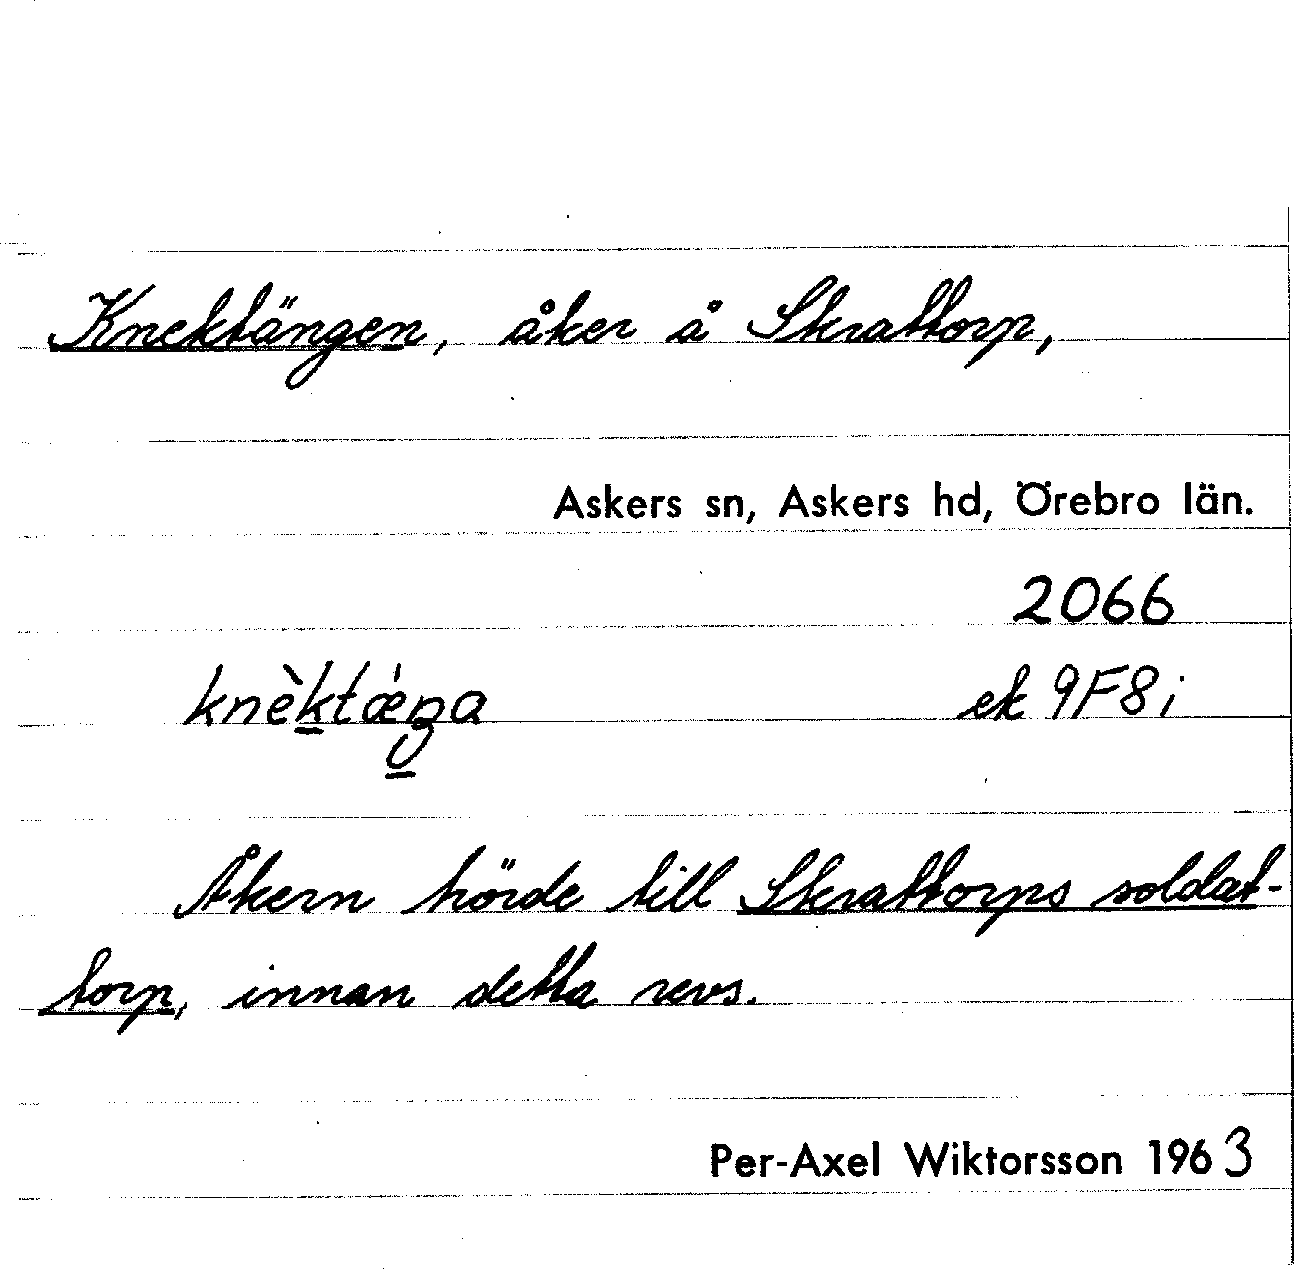 Knektängen, åker å Skrattorp,
Askers sn, Askers hd, Örebro län.
2066
knèktǽŋa ek 9F8i
Åkern hörde till Skrattorps soldat-
torp, innan detta revs.
Per-Axel Wiktorsson 1963